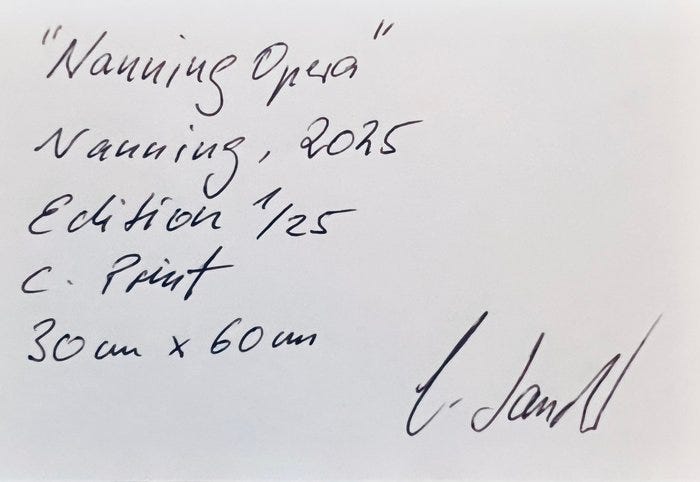 "Nanning Opera"
Nanning, 2025
Edition 1/25
C. Print
30cm x 60cm